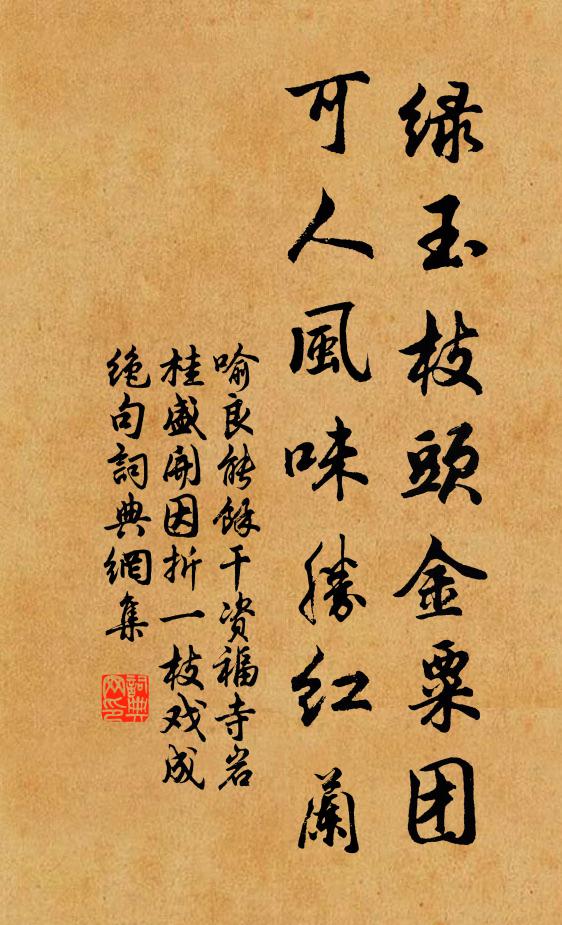 绿玉枝頭金粟团
可人風味勝红蘭
喻良能餘干资福寺岩
桂盛開因折一枝戏成
绝句詞典網集
詞典网印